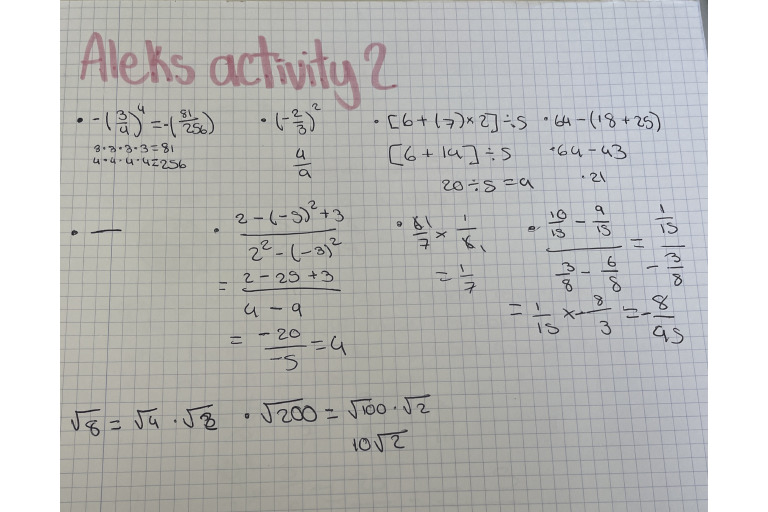 Aleks activity 2
• -(3/4)^4 = -(81/256)
3·3·3·3=81
4·4·4·4=256
• (-2/3)^2
4/9
• [6+(7)×2]÷5
[6+14]÷5
20÷5=4
• 64-(18+25)
•64-43
•21
• —
• (2-(-5)^2+3)/(2^2-(-3)^2)
= (2-25+3)/(4-9)
= -20/-5 = 4
• 6^1/7 × 1/6_1
= 1/7
• (10/15 - 9/15)/(3/8 - 6/8) = (1/15)/(-3/8)
= 1/15 × -8/3 = -8/45
√8 = √4 · √8
• √200 = √100 · √2
10√2